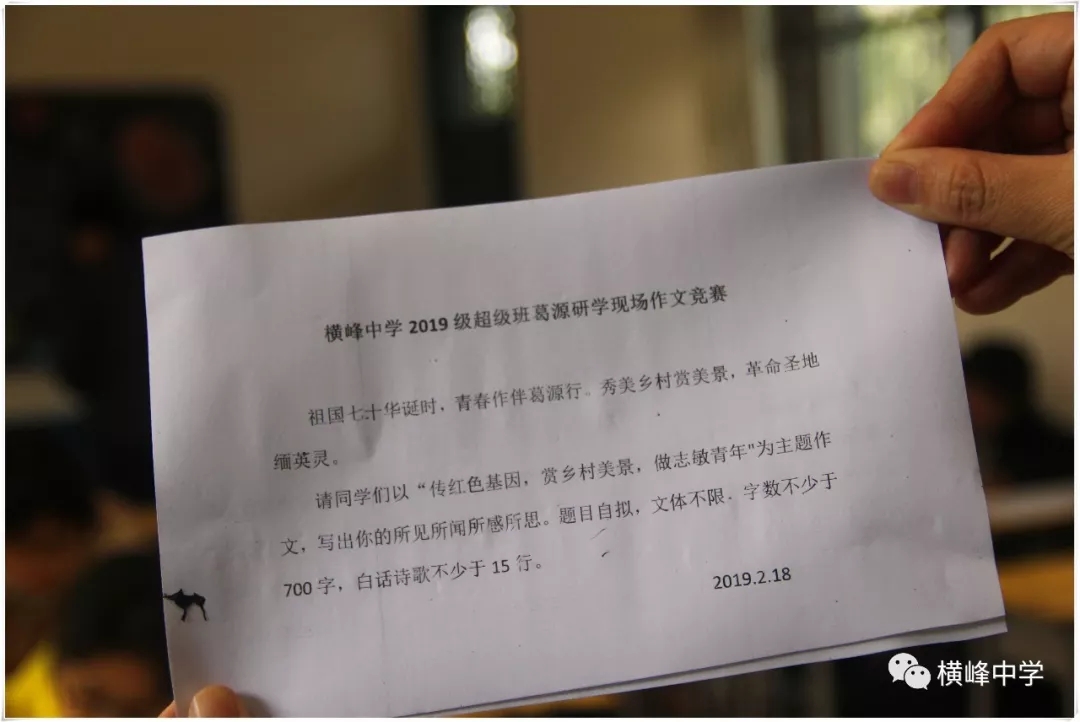 横峰中学 2019 级超级班葛源研学现场作文竞赛
祖国七十华诞时，青春作伴葛源行。秀美乡村赏美景，革命圣地
缅英灵。
请同学们以“传红色基因，赏乡村美景，做志敏青年"为主题作
文，写出你的所见所闻所感所思。题目自拟，文体不限．字数不少于
700 字，白话诗歌不少于 15 行。
2019.2.18
横峰中学